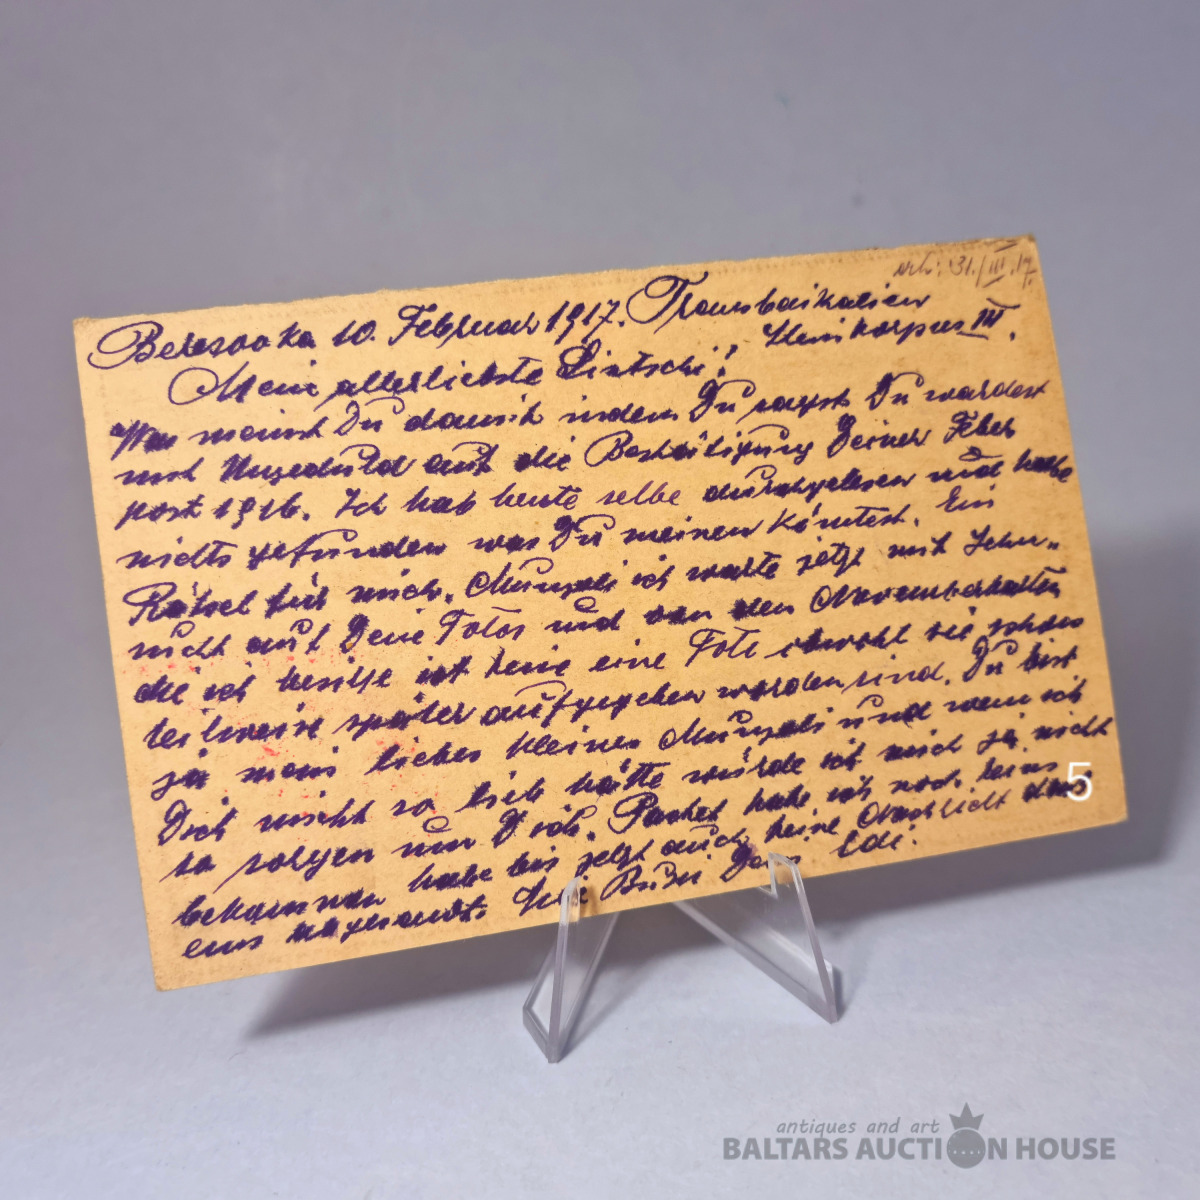 erh: 31./III.17.
Beresovka 10. Februar 1917. Transbaikalien
Mein allerliebste Lintschi! III.
Was meinst Du damit indem Du sagst Du wardest
mit Ungeduld auf die Bestätigung Deiner Feber
post 1916. Ich hab heute selbe durchgelesen und habe
nichts gefunden was Du meinen köntest. Ein
Rätsel für mich. Munzali ich warte jetzt mit Sehn-
sucht auf Deine Fotos und von den Novemberkarten
die ich besitze ist keine eine Foto obwohl sie schon
teilweise später aufgegeben worden sind. Du bist
ja mein liebes kleines Munzali und wenn ich
Dich nicht so lieb hätte würde ich mich ja nicht
so sorgen um Dich. Packet habe ich noch keins
bekommen habe bis jetzt auch keine Nachricht dass
eins Bussi Dein Edi.
5
antiques and art
BALTARS AUCTION HOUSE